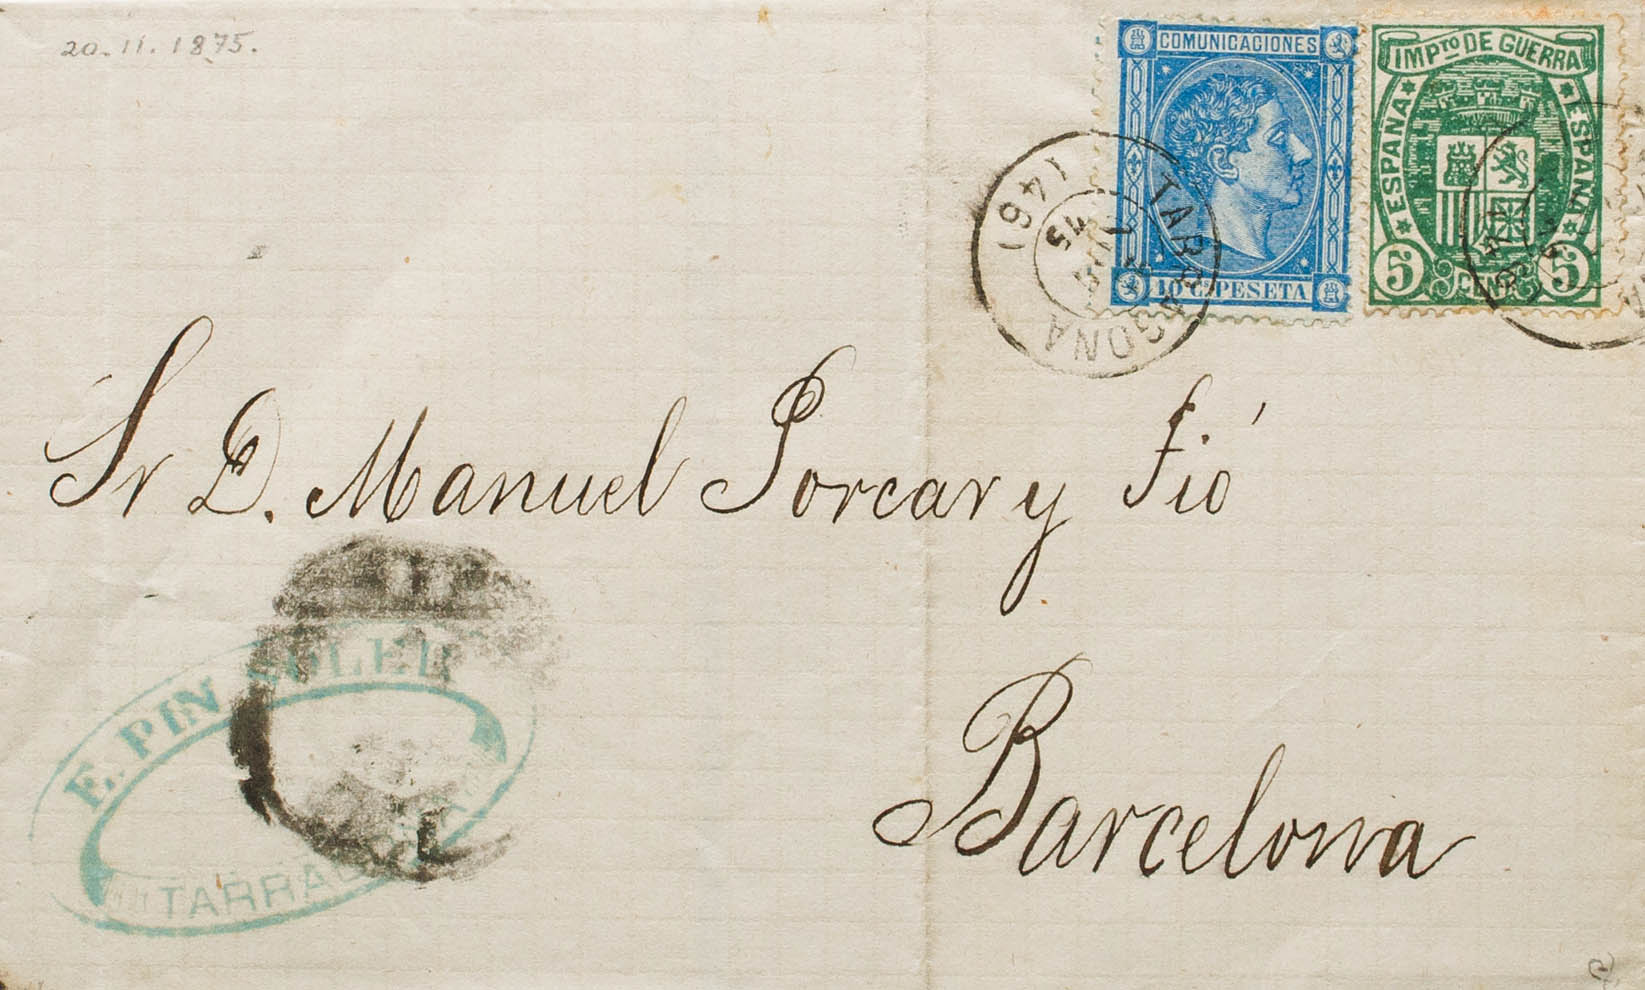 20.11.1875.
COMUNICACIONES
10 C. PESETA
IMPTO DE GUERRA
ESPAÑA
ESPAÑA
5 CENT 5
TARRAGONA
(461)
Sr D. Manuel Porcar y Tió
Barcelona
E. PIN SOLER
TARRAGONA